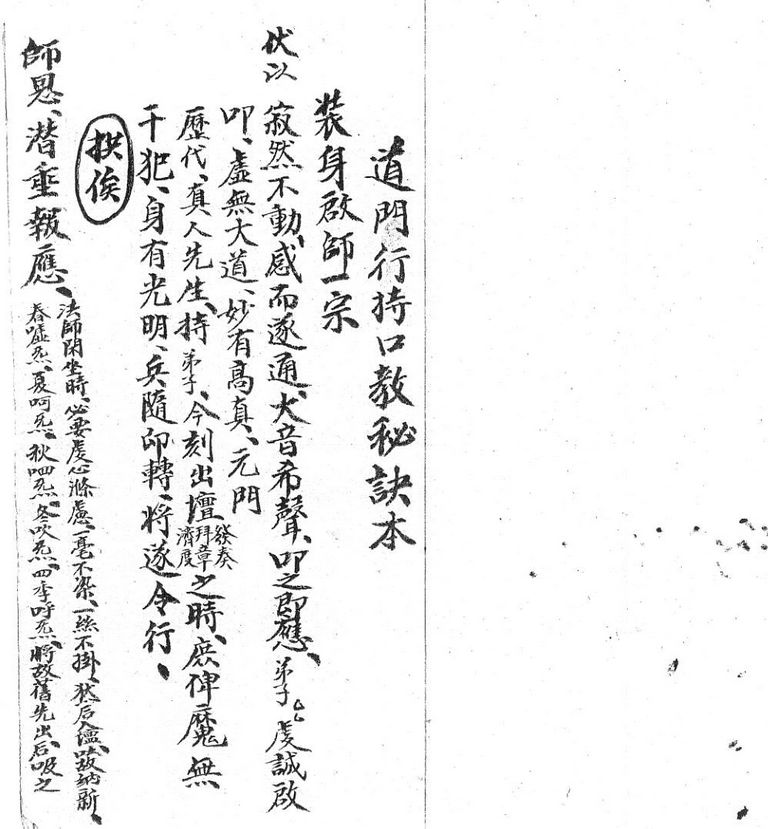 道門行持口教秘訣本
装身啟師一宗
伏以
寂然不動、感而遂通、大音希聲、叩之即應、弟子厶厶虔誠啟
叩、虛無大道、妙有高真、元門
歷代、真人先生、持弟子、今刻出壇發奏拜章濟度之時、庶俾魔無
干犯、身有光明、兵隨印轉、將遂令行、
拱俟
師恩、潛垂報應、
法師閑坐時、必要虔心滌慮、一毫不染、一絲不掛、然后入壇、故納新、
春噓炁、夏呵炁、秋呬炁、冬吹炁、四季呼炁、將故舊先出后吸之